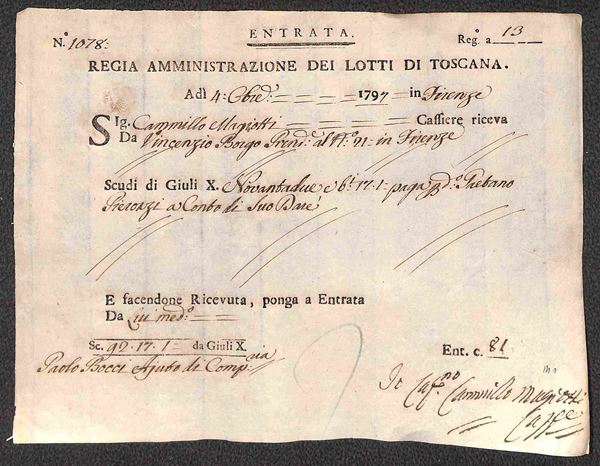 ENTRATA.
N.º 1078: Reg.º a 13
REGIA AMMINISTRAZIONE DEI LOTTI DI TOSCANA.
Adì 4: 8bre: 1797 in Firenze
Sig. Cammillo Magiotti Cassiere riceva
Da Vincenzio Borgo Prend.e al N.º 91 in Firenze
Scudi di Giuli X. Novantadue e 17.1 paga Gaetano
a Conto di Suo Dare
E facendone Ricevuta, ponga a Entrata
Da Lui med.º
Sc. 92.17.1 da Giuli X. Ent. c. 81
Paolo Bocci Ajuto di Comp.ria
Io Cammillo Magiotti
Cass.e